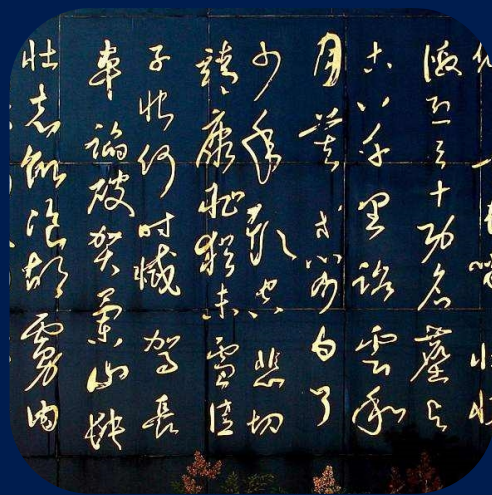 激烈三十功名塵與
土八千里路雲和
月莫等閒白了
少年頭空悲切
靖康耻猶未雪臣
子恨何時憾駕長
車踏破賀蘭山缺
壯志飢飡胡虜肉